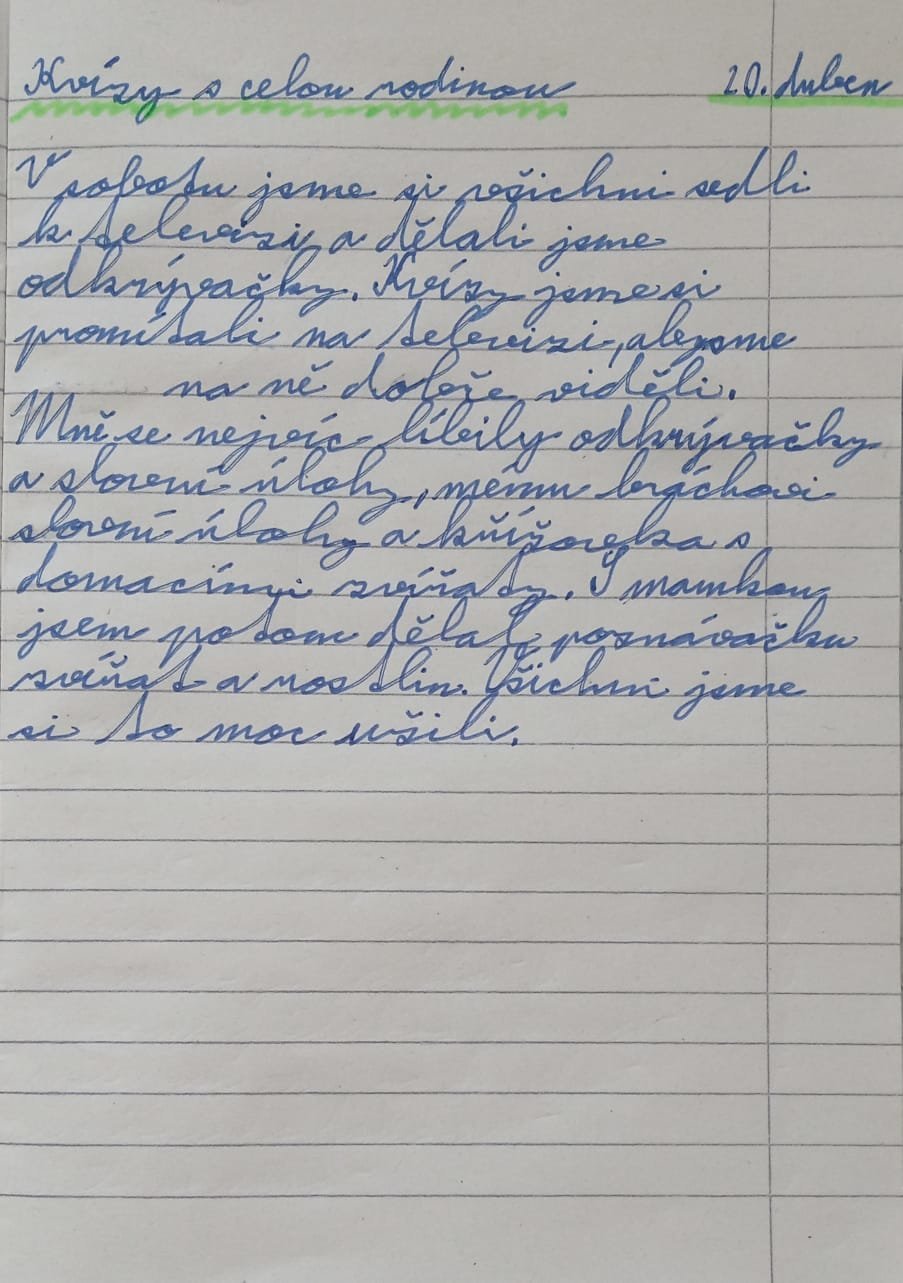 Kvízy s celou rodinou 20. duben
V sobotu jsme si všichni sedli
k televizi a dělali jsme
odkrývačky. Kvízy jsme si
promítali na televizi, abysme
na ně dobře viděli.
Mně se nejvíc líbily odkrývačky
a slovní úlohy, mému bráchovi
slovní úlohy a křížovka s
domacími zvířaty. S mamkou
jsem potom dělal poznávačku
zvířat a rostlin. Všichni jsme
si to moc užili.